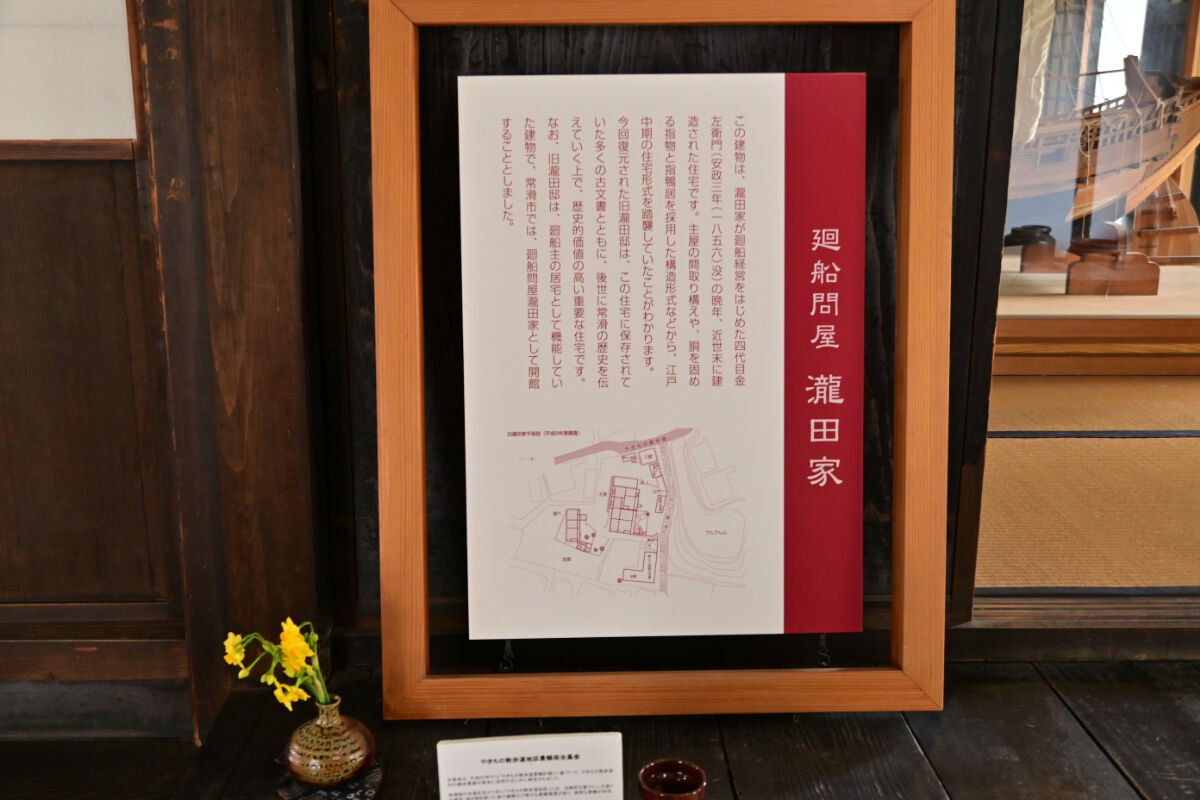 廻船問屋 瀧田家
この建物は、瀧田家が廻船経営をはじめた四代目金
左衛門（安政三年（一八五六）没）の晩年、近世末に建
造された住宅です。主屋の間取り構えや、胴を固め
る指物と指鴨居を採用した構造形式などから、江戸
中期の住宅形式を踏襲していたことがわかります。
今回復元された旧瀧田邸は、この住宅に保存されて
いた多くの古文書とともに、後世に常滑の歴史を伝
えていく上で、歴史的価値の高い重要な住宅です。
なお、旧瀧田邸は、廻船主の居宅として機能してい
た建物で、常滑市では、廻船問屋瀧田家として開館
することとしました。
旧瀧田家平面図（平成9年度調査）
やきもの散歩道
でんでん山
主屋
離れ
やきもの散歩道地区景観保全基金